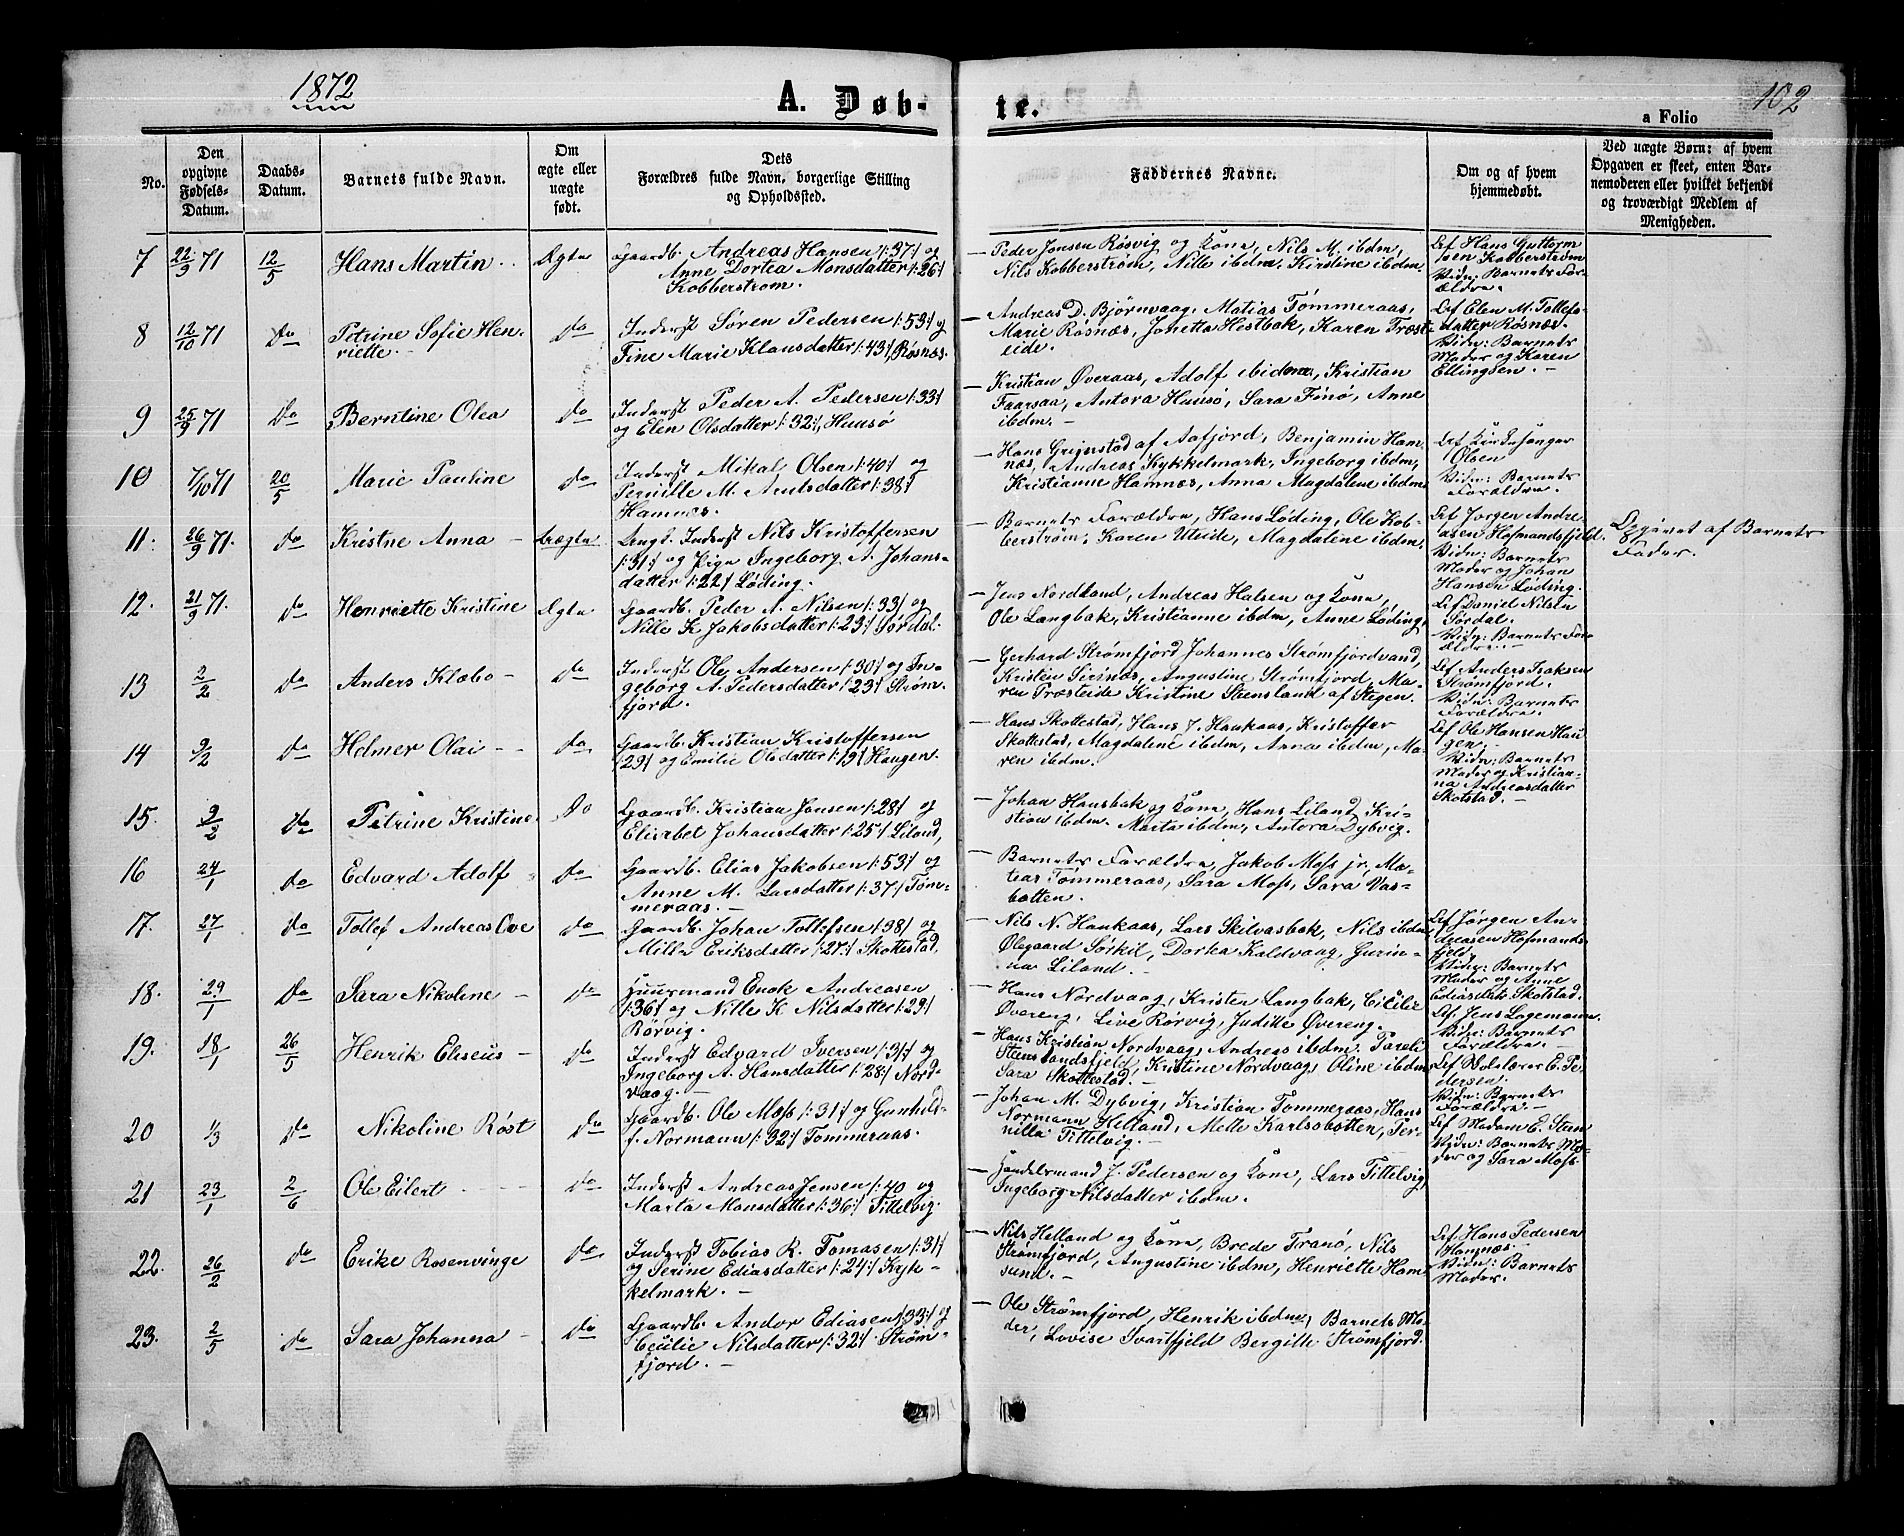 1872
A. Døb-
te.
102
a Folio
No.
Den
opgivne
Fødsels-
Datum.
Daabs-
Datum.
Barnets fulde Navn.
Om
ægte eller
uægte
født.
Dets
Forældres fulde Navn, borgerlige Stilling
og Opholdssted.
Faddernes Navne.
Om og af hvem
hjemmedøbt.
Ved uægte Børn: af hvem
Opgaven er skeet, enten Bar-
nemoderen eller hvilket bekjendt
og troværdigt Medlem af
Menigheden.
7 22/9 71 12/5 Hans Martin Ægte
Gaardb. Andreas Hansen /:37:/ og
Anne Dortea Monsdatter /:26:/
Kobberstrøm.
Peder Jensen Røsvig og Kone, Nils M. ibdm,
Nils Kobberstrøm, Nille ibdm, Kirstine ibdm.
Lef Hans Guttorm
sen Kobberstrøm
Vidn: Barnets For-
ældre.
8 12/10 71 Do Petrine Sofie Hen-
riette. Do
Inderst Søren Pedersen /:53:/ og
Fine Marie Klausdatter /:43:/, Røsnæs.
Andreas D. Bjørnvaag, Matias Tømmeraas,
Marie Røsnæs, Jonetta Hestbak, Karen Træst-
eide.
Lef Elen M. Tollefs-
datter Røsnæs.
Vidn: Barnets
Moder og Karen
Ellingsen.
9 25/9 71 Do Berntine Olea Do
Inderst Peder A. Pedersen /:33:/
og Elen Olsdatter /:32:/, Hunsø
Kristian Øveraas, Adolf ibidem, Kristian
Faarsaa, Antora Hunsø, Sara Finø, Anne
ibdm.
10 7/10 71 20/5 Marie Pauline Do
Inderst Mikal Olsen /:40:/ og
Pernille M. Arntsdatter /:38:/
Hamnes.
Hans Grignstad af Aafjord, Benjamin Ham-
næs, Andreas Kykkelmark, Ingeborg ibdm,
Kristianne Hamnæs, Anna Magdalene ibdm.
Lef Kirkesanger
Olsen
Vidn: Barnets
Forældre.
11. 26/9 71. Do Kristne Anna Uægte
Ungk. Inderst Nils Kristoffersen
/:31:/ og Pige Ingeborg A. Johans-
datter /:22:/ Løding.
Barnets Forældre, Hans Løding, Ole Kob-
berstrøm, Karen Uteide, Magdalene ibdm.
Lef Jørgen Andre
asen Hofmandsfjeld.
Vidn: Barnets
Moder og Johan
Hansen Løding.
Opgivet af Barnets
Fader.
12. 21/9 71. Do Henriette Kristine Ægte
Gaardb. Peder A. Nilsen /:33/ og
Nille K Jakobsdatter /:23:/ Sørdal.
Jens Nordland, Andreas Halsen og Kone,
Ole Langbak, Kristianne ibdm, Anne Løding.
Lef Daniel Nilsen
Sørdal.
Vidn: Barnets For-
ældre.
13 2/2 Do Anders Klæbo Do
Inderst Ole Andersen /:30:/ og In-
geborg A. Pedersdatter /:23:/ Strøm-
fjord.
Gerhard Strømfjord Johannes Strømfjordvand,
Kristen Sirinæs, Augustine Strømfjord, Ma-
ren Præsteide Kristine Steensland af Stegen.
Lef Anders Isaksen
Strømfjord.
Vidn: Barnets
Forældre.
14 9/2 Do Holmer Olai Do
Gaardb. Kristian Kristoffersen
/:29/ og Emilie Olsdatter /:19/ Haugen.
Hans Skottestad, Hans J. Haukaas, Kristoffer
Skottestad, Magdalene ibdm, Anna ibdm, Ma-
ren ibdm.
Lef Ole Hansen Hau
gen.
Vidn: Barnets
Moder og Kristian-
na Andreasdatter
Skotstad.
15. 9/2 Do Petrine Kristine Do
Gaardb. Kristian Jensen /:28:/ og
Elisebet Johansdatter /:25:/ Liland,
Johan Hansbak og Kone, Hans Liland, Kri-
stian ibdm. Marta ibdm, Antora Dybvig.
16 24/1 Do Edvard Adolf Do
Gaardb. Elias Jakobsen /:53:/ og
Anne M. Larsdatter /:37:/ Tøm-
meraas.
Barnets Forældre, Jakob Moss jr, Ma-
tias Tømmeraas, Sara Moss, Sara Vas-
botten.
17. 27/1 Do Tollef Andreas Ove Do
Gaardb. Johan Tollefsen /:38/ og
Milla Eriksdatter /:27:/ Skottestad.
Nils N. Haukaas, Lars Skilvasbak, Nils ibdm,
Olegaard Sørkil, Dorka Kaldvaag, Gurin-
na Liland.
Lef Jørgen An-
dreasen Hofmands-
fjeld.
Vidn: Barnets
Moder og Anne
Ediasdatr Skotstad.
18. 29/1 Do Sara Nikoline Do
Huusmand Enok Andreasen
/:36:/ og Nille K Nilsdatter /:29/
Rørvig.
Hans Nordvaag, Kristen Langbak, Cicilie
Øvereng, Live Rørvig, Judithe Øvereng.
Lef Jens Lagemann.
Vidn: Barnets
Forældre.
19. 18/1 26/5 Henrik Eliseus Do
Inderst Edvard Iversen /:31:/ og
Ingeborg A. Hansdatter /:28:/ Nord-
vaag.
Hans Kristian Nordvaag, Andreas ibdm. Pareli
Steenslandsfjeld, Kristine Nordvaag, Oline ibdm.
Sara Skottestad.
Lef Skolelærer E. Pe-
dersen.
Vidn: Barnets
Forældre.
20 1/3 Do Nikoline Røst Do
Gaardb. Ole Moss /:31:/ og Gunhild
f. Normann /:32:/ Tømmeraas.
Johan M. Dybvig, Kristian Tømmeraas, Hans
Normann Helland, Mette Karlssbotten, Per-
nille Tittelvig.
Lef Madam E. Steen
Vidn: Barnets Mo-
der og Sara Moss.
21 23/1 2/6 Ole Eilert Do
Inderst Andreas Jensen /:40 og
Marta Monsdatter /:36:/ Tittelvig.
Handelsmand J. Pedersen og Kone, Lars Tittelvig,
Ingeborg Nilsdatter ibdm.
22. 26/2 Do Erike Rosenvinge Do
Inderst Tobias R. Tomasen /:31:/
og Serine Ediasdatter /:24:/ Kyk-
kelmark.
Nils Helland og Kone, Brede Tranø, Nils
Strømfjord, Augustine ibdm, Henriette Ham
sund.
Lef Hans Pedersen
Hamnæs.
Vidn: Barnets
Moder.
23. 2/5 Do Sara Johanna Do
Gaardb. Andor Ediasen /:33:/ og
Cecilie Nilsdatter /:32:/ Strøm-
fjord.
Ole Strømfjord, Henrik ibdm, Barnets Mo-
der, Lovise Svartfjeld Bergitte Strømfjord.